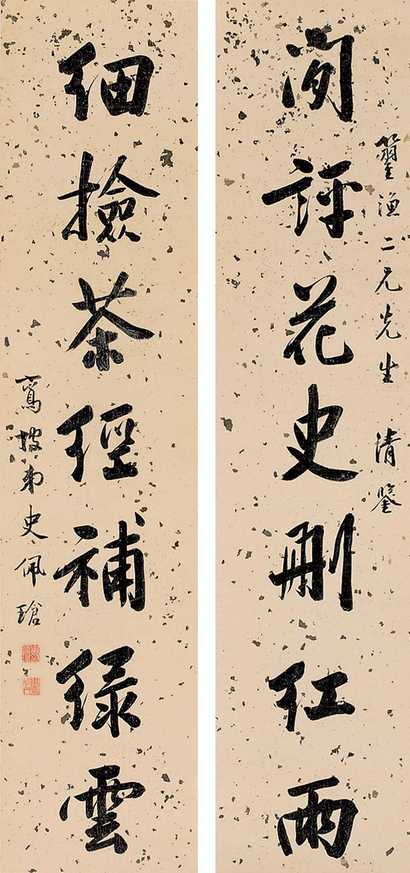 篁漁二兄先生 清鑒
閒評花史刪紅雨
細撿茶經補綠雲
鶯坡弟史佩瑲